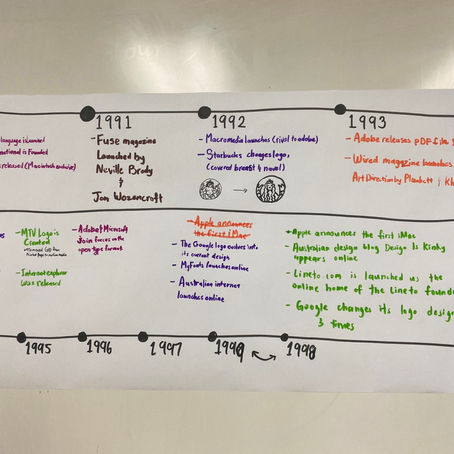 1991
1992
1993
language is launched
national is Founded
released (Macintosh exclusive)
- Fuse magazine
launched by
Neville Brody
+
Jon Wozencroft
- Macromedia launches (rival to adobe)
- Starbucks changes logo,
(covered breast & navel)
- Adobe releases PDF file
- Wired magazine launches
Art Direction by Plunkett + Kuhr
- MTV Logo is
Created
- Internet explorer
was released
- Adobe & Microsoft
Join forces on the
open type format
- Apple announces
the first iMac
- The Google logo evolves into
its current design
- MyFonts launches online
- Australian internet
launches online
- Apple announces the first iMac
- Australian design blog Design Is Kinky
appears online
- Lineto.com is launched as the
online home of the Lineto foundry
- Google changes its logo design
3 times
1995
1996
1997
1999
1998